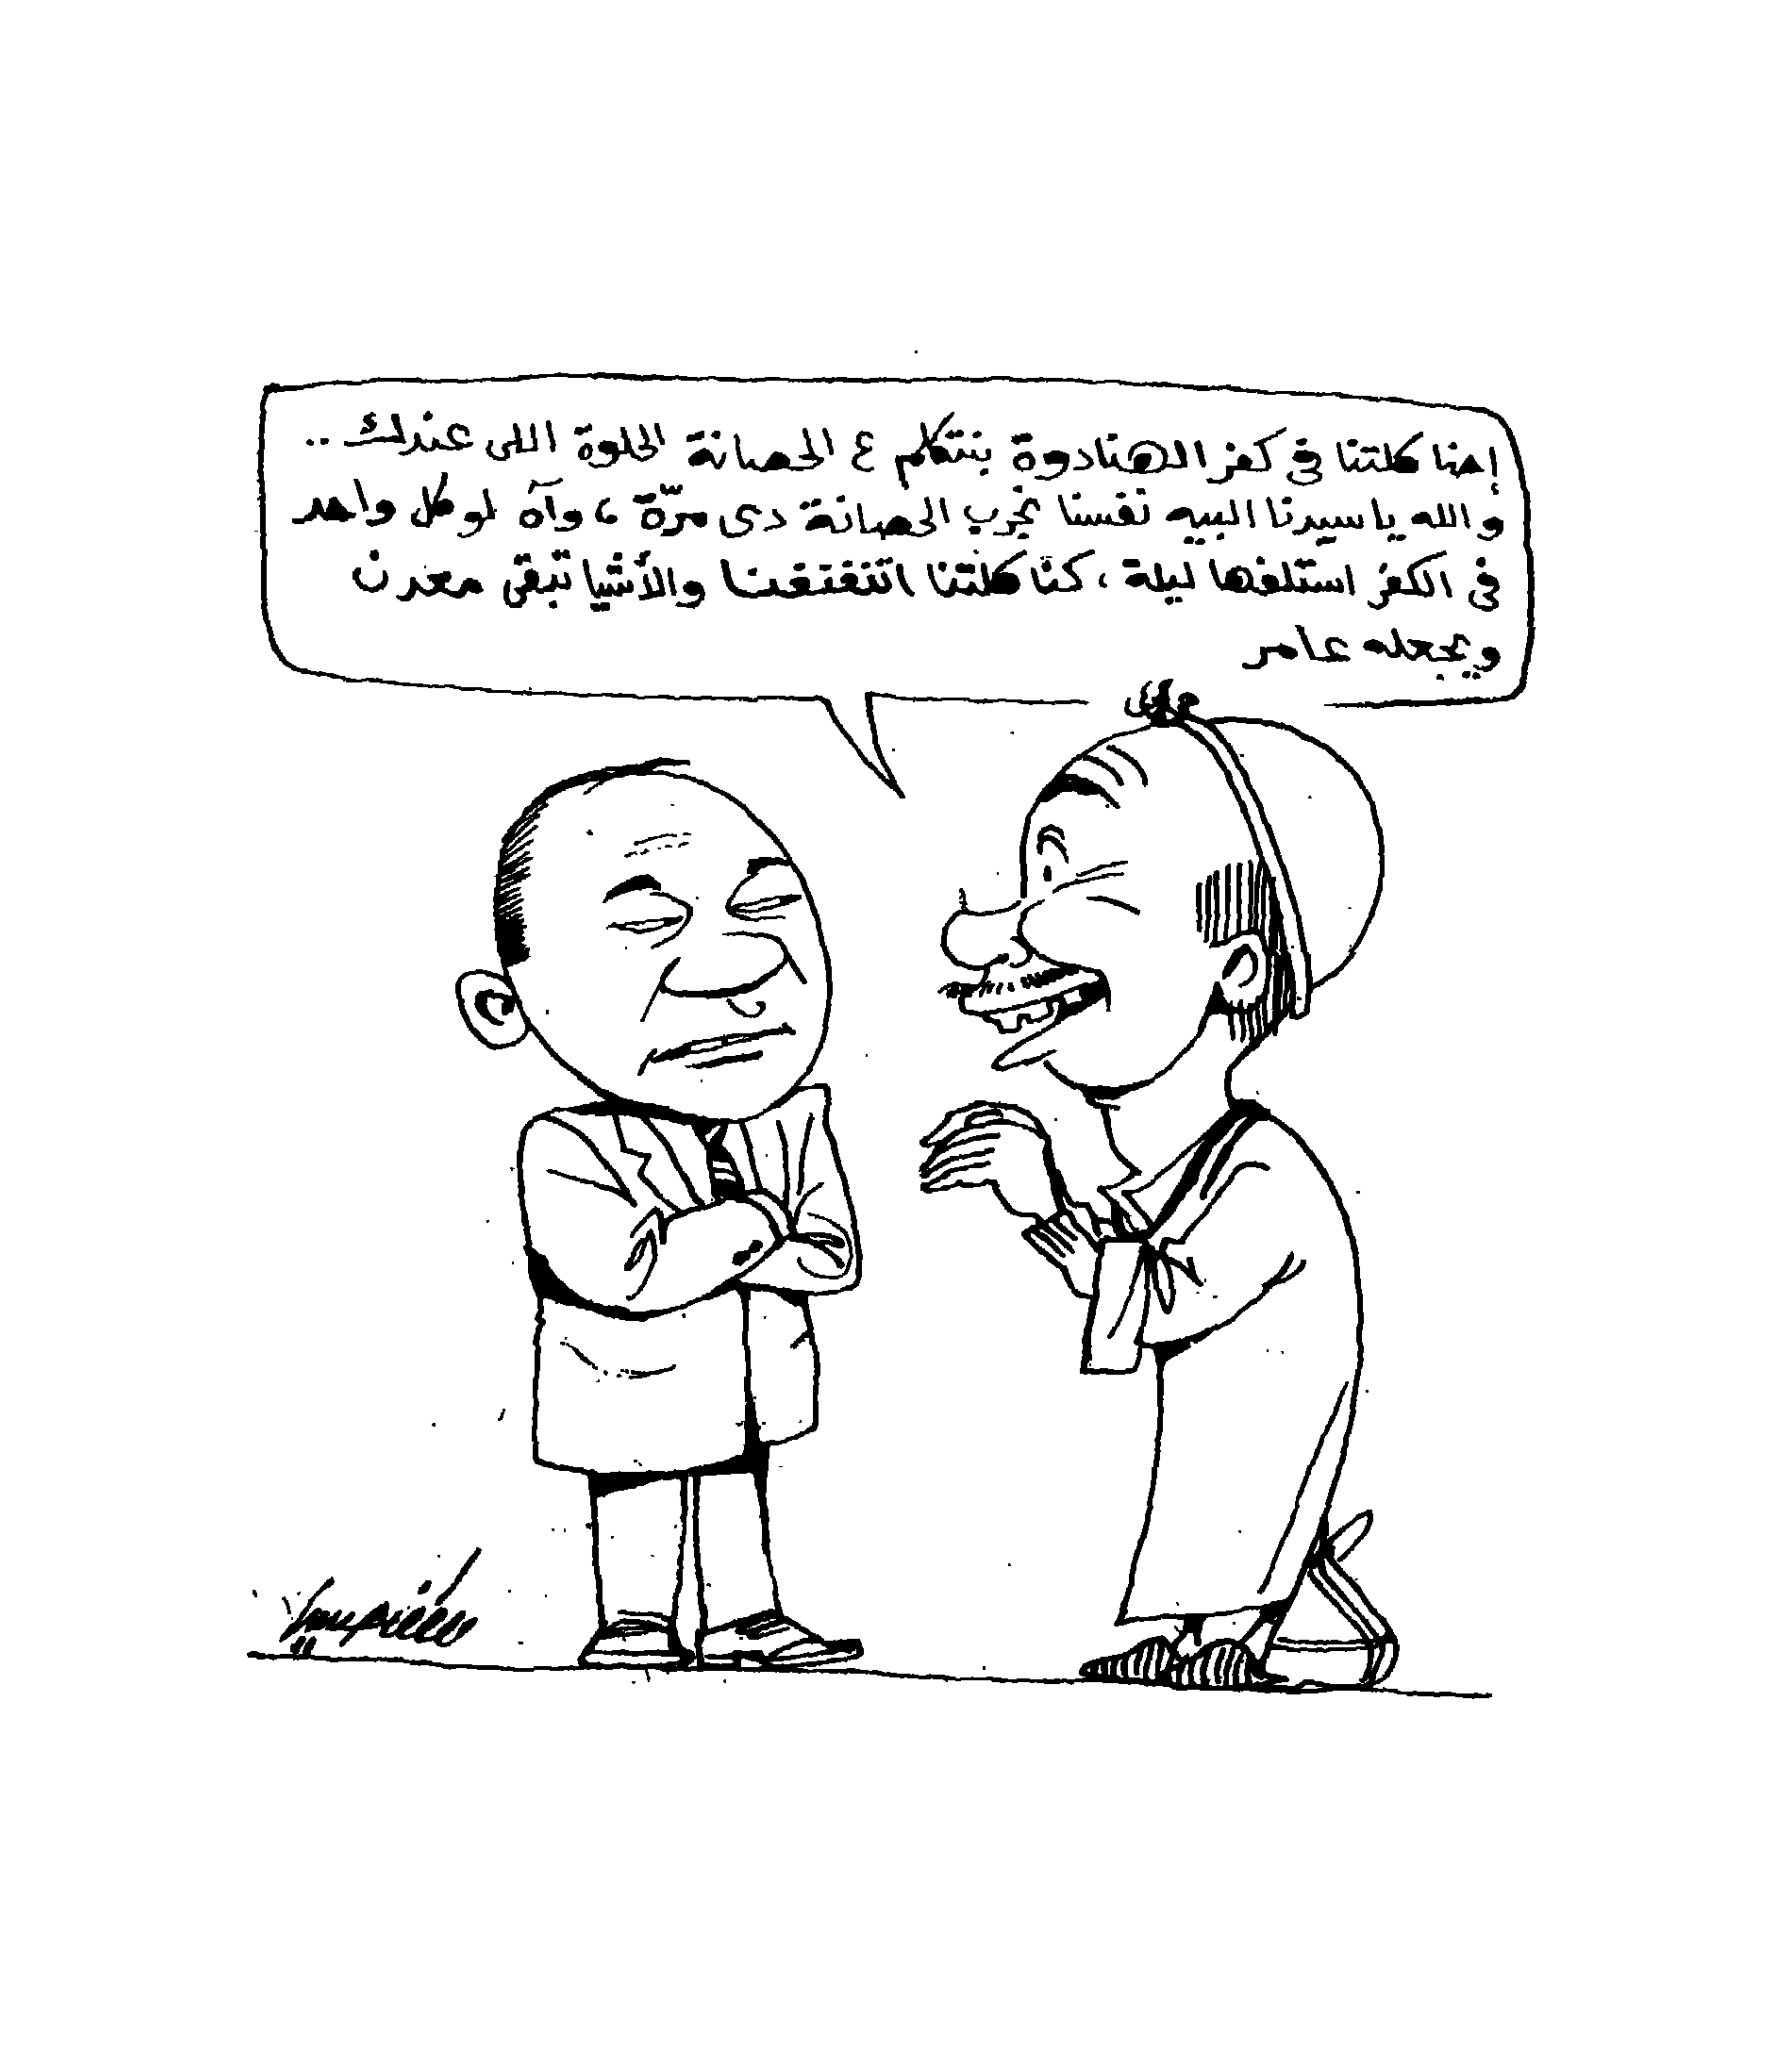 إحنا كلتنا فى كفر الهنادوة بنتكلم ع الحصانة الحلوة اللى عندك ..
والله يا سيدنا البيه نفسنا نجرب الحصانة دى مرّة ، وآه لو كل واحد
فى الكفر استلفها ليلة ، كنّا كلتنا اتنغنغنا والأشيا تبقى معدن
ويجعله عامر